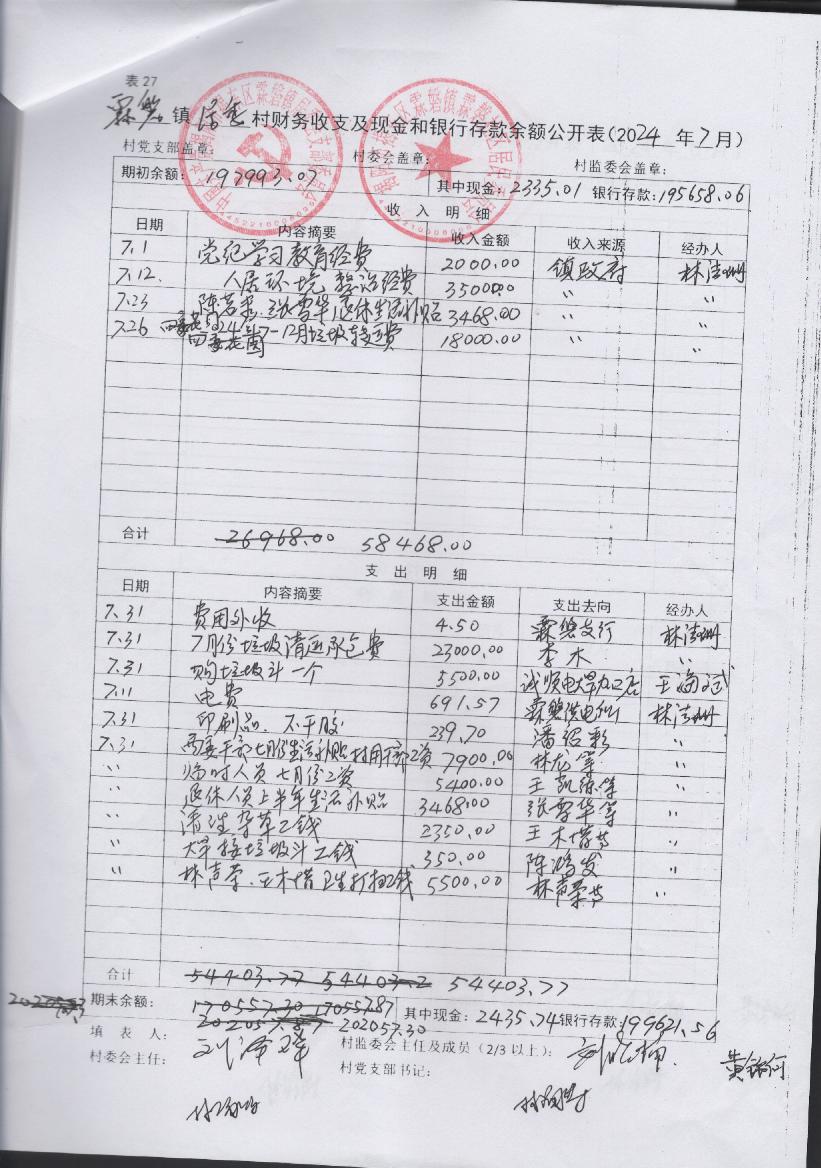 表27
霖磐镇 村财务收支及现金和银行存款余额公开表(2024年7月)
村党支部盖章: 村委会盖章: 村监委会盖章:
期初余额: 197993.07 其中现金: 2335.01 银行存款: 195658.06
收入明细
日期 内容摘要 收入金额 收入来源 经办人
7.1 党纪学习教育经费 2000.00 镇政府
7.12. 人居环境整治经费 35000.00 〃 〃
7.23 张雪华退休生活补贴 3468.00 〃 〃
7.26 24年7-12月垃圾转运费 18000.00 〃 〃
四季花园
合计 26968.00 58468.00
支出明细
日期 内容摘要 支出金额 支出去向 经办人
7.31 费用外收 4.50 霖磐支行
7.31 7月份垃圾清运承包费 23000.00 李木 〃
7.31 购垃圾斗一个 5500.00 诚顺电焊加工店
7.11 电费 691.57 霖磐供电所
7.31 印刷品、不干胶 239.70 潘绍彰 〃
7.31 两委干部七月份生活补贴 7900.00 林龙等 〃
〃 临时人员七月份工资 5400.00 王凯 等 〃
〃 退休人员上半年生活补贴 3468.00 张雪华等 〃
〃 清 杂草工钱 2350.00 王木惜等 〃
〃 焊接垃圾斗工钱 350.00 陈鸿发 〃
〃 林声荣、王木惜卫生打扫工钱 5500.00 林声荣等 〃
合计 54403.77 54403.2 54403.77
期末余额: 170557.30 170557.87 其中现金: 2435.74 银行存款: 199621.56
202057.87 202057.30
填表人: 村监委会主任及成员(2/3以上):
村委会主任: 村党支部书记: